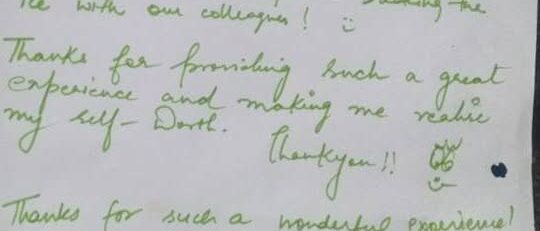 ice with our colleagues! breaking the
Thanks for providing such a great
experience and making me realise
my self-Worth.
Thankyou!!
Thanks for such a wonderful experience!